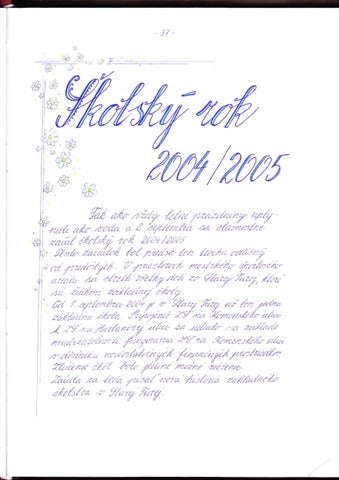 - 37 -
Školský rok
2004/2005
Tak ako vždy letné prázdniny uply-
nuli ako voda a 2. septembra sa slávnostne
začal školský rok 2004/2005.
Tento začiatok bol predsa len trochu odlišný
od predošlých. V priestoroch mestského športového
areálu sa stretli všetky deti zo Starej Turej, ktoré
sú žiakmi základnej školy.
Od 1. septembra 2004 je v Starej Turej už len jedna
základná škola. Pripojenie ZŠ na Komenského ulici
k ZŠ na Hurbanovej ulici sa udialo na základe
fungovania ZŠ na Komenského ulici
v dôsledku nedostatočných finančných prostriedkov.
Zlúčenie škôl bolo jediné možné riešenie.
Začala sa teda písať nová história základného
školstva v Starej Turej.